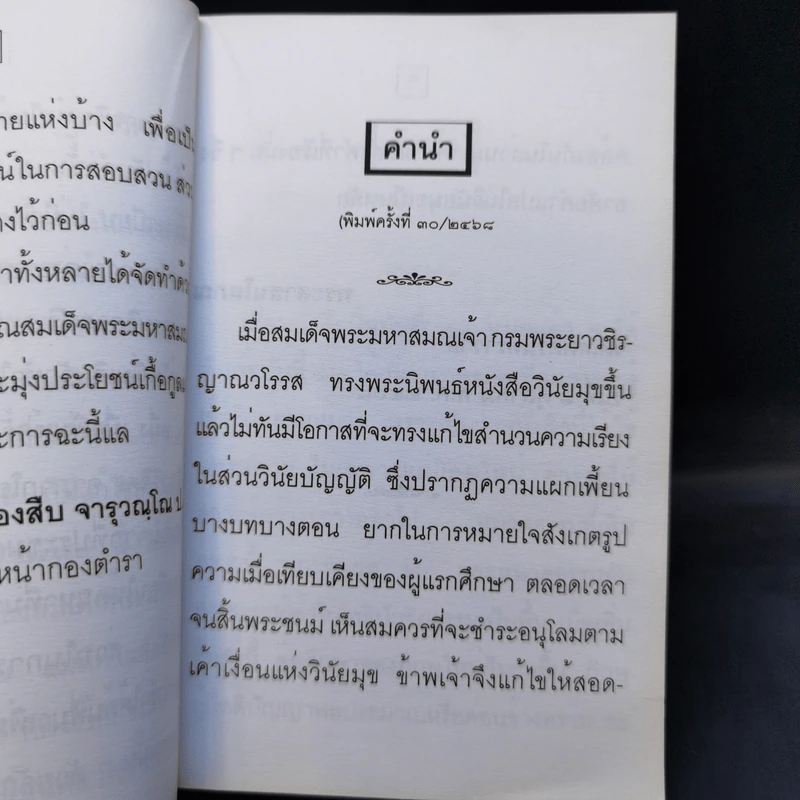 ายแห่งบ้าง เพื่อเป็
น์ในการสอบสวน ส่ว
างไว้ก่อน
าทั้งหลายได้จัดทำด้ว
ณสมเด็จพระมหาสมณ
ะมุ่งประโยชน์เกื้อกูล
ะการฉะนี้แล
องสืบ จารุวณฺโณ ป
หน้ากองตำรา
คำนำ
(พิมพ์ครั้งที่ ๓๐/๒๔๖๘
เมื่อสมเด็จพระมหาสมณเจ้า กรมพระยาวชิร-
ญาณวโรรส ทรงพระนิพนธ์หนังสือวินัยมุขขึ้น
แล้วไม่ทันมีโอกาสที่จะทรงแก้ไขสำนวนความเรียง
ในส่วนวินัยบัญญัติ ซึ่งปรากฏความแผกเพี้ยน
บางบทบางตอน ยากในการหมายใจสังเกตรูป
ความเมื่อเทียบเคียงของผู้แรกศึกษา ตลอดเวลา
จนสิ้นพระชนม์ เห็นสมควรที่จะชำระอนุโลมตาม
เค้าเงื่อนแห่งวินัยมุข ข้าพเจ้าจึงแก้ไขให้สอด-